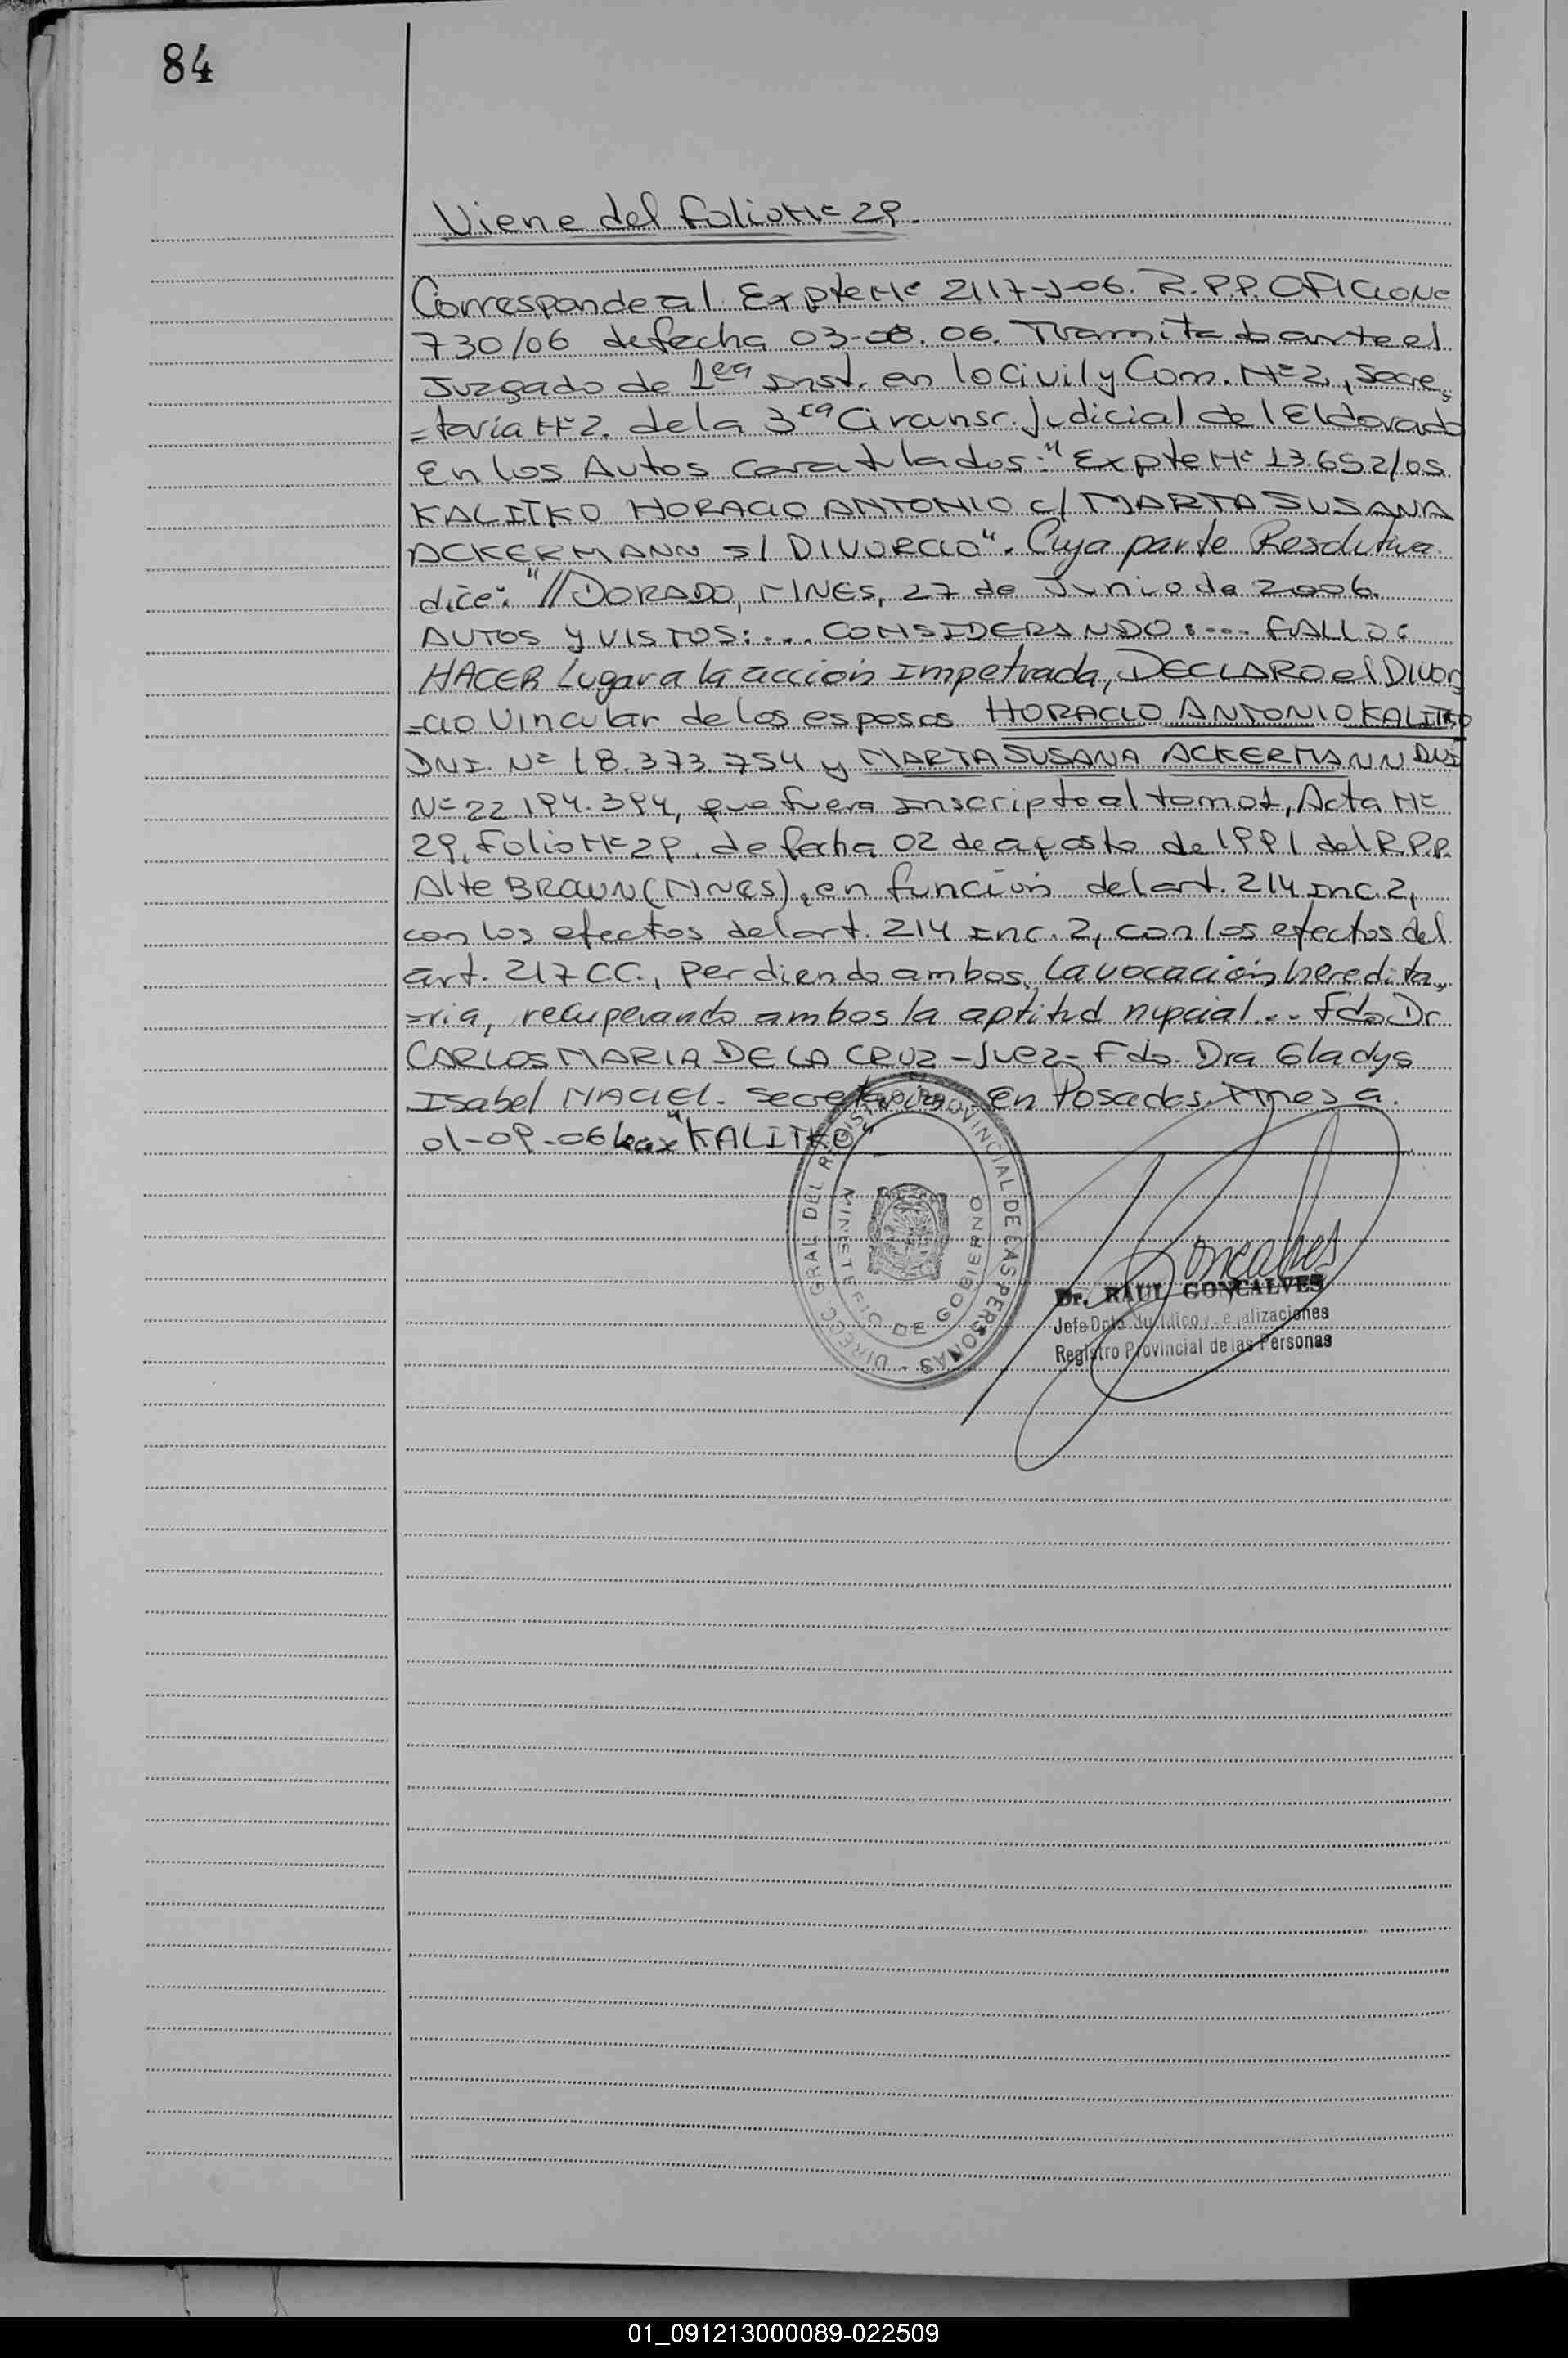 84
Viene del Folio Nº 29.
Corresponde al Expte Nº 2117-J-06. R.P.P. OFICIO Nº
730/06 de fecha 03-08.06. Tramitado ante el
Juzgado de 1era Inst. en lo Civil y Com. Nº 2, Secre
=taría Nº 2. de la 3ra Circunsc. Judicial de l Eldorado
En los Autos caratulados: "Expte Nº 13.652/05
KALITKO HORACIO ANTONIO c/ MARTA SUSANA
ACKERMANN s/ DIVORCIO". Cuya parte Resolutiva
dice: "//DORADO, MNES, 27 de Junio de 2006.
AUTOS Y VISTOS:... CONSIDERANDO:... FALLO:
HACER Lugar a la acción Impetrada, DECLARO el Divor
=cio Vincular de los esposos HORACIO ANTONIO KALITKO
DNI. Nº 18.373.754 y MARTA SUSANA ACKERMANN DNI
Nº 22.194.394, que fuera inscripto al tomo 1, Acta Nº
29, Folio Nº 29, de fecha 02 de agosto de 1991 del R.P.P.
Alte BROWN (MNES), en función del art. 214 inc. 2,
con los efectos del art. 214 inc. 2, con los efectos del
art. 217 CC., perdiendo ambos, la vocación heredita
=ria, recuperando ambos la aptitud nupcial... Fdo Dr
CARLOS MARIA DE LA CRUZ - Juez - Fdo. Dra Gladys
Isabel MACIEL. Secretaria. En Posadas. Mnes a.
01-09-06 "KALITKO"
DIRECC. GRAL DEL REGISTRO PROVINCIAL DE LAS PERSONAS -
MINISTERIO DE GOBIERNO
Goncalves
Dr. RAUL GONCALVES
Jefe Dpto Jurídico
Registro Provincial de las Personas
01_091213000089-022509